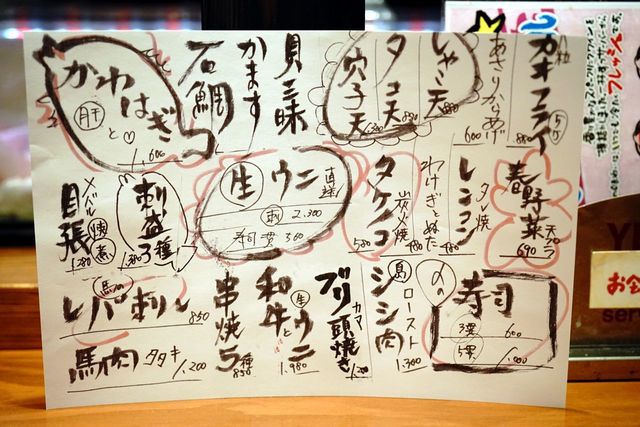 カキフライ
あさりかりあげ
しゃこ天
タコ天
穴子天
貝三昧
かます
石鯛
かわはぎ
肝
と♡
1,600
春野菜
天プラ
690
レンコン
タレ焼
480
わけぎとぬた
480
タケノコ
炭火焼
580
生ウニ
直送
刺 2,300
寿司一貫 560
刺盛
3種
1,380
メバル
目張
煉 煮
1,280
〆の
寿司
3貫 600
5貫 1,000
シシ肉
島
ロースト
1,300
ブリ頭焼き
カマ
1,200
和牛と生ウニ
1,980
串焼
5種
850
馬
レバ刺し
850
馬肉タタキ
1,200
フレッシュ
です。
お会